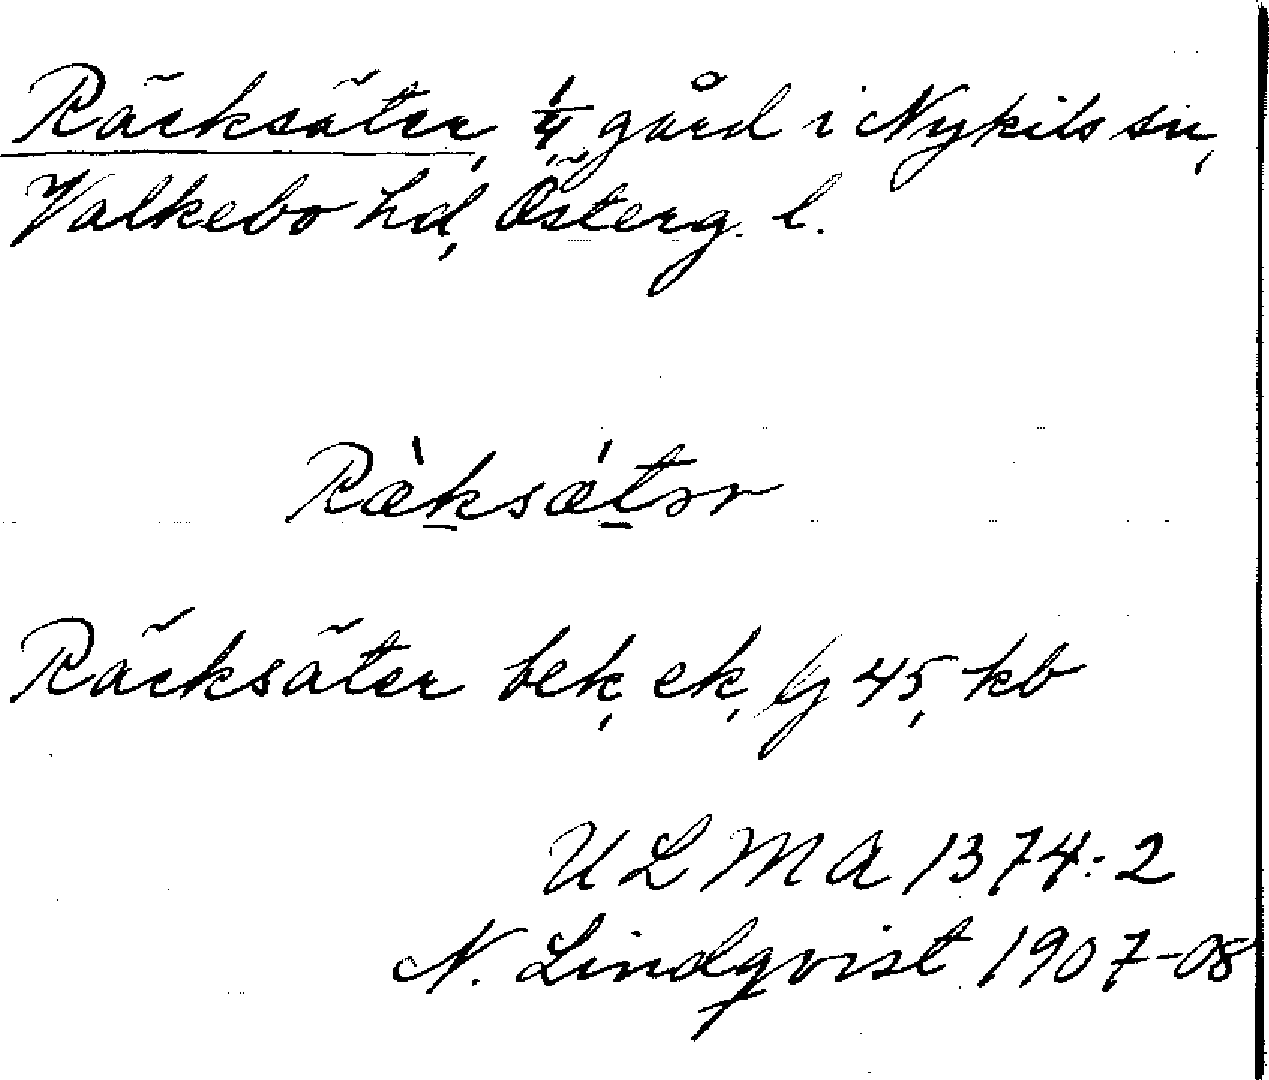 Räcksäter, 1/4 gård i Nykils sn,
Valkebo hd, Österg. l.
Ræ̀ksǽtər
Räcksäter bek, ek, lj 45, kb
ULMA 1374:2
N. Lindqvist 1907-08